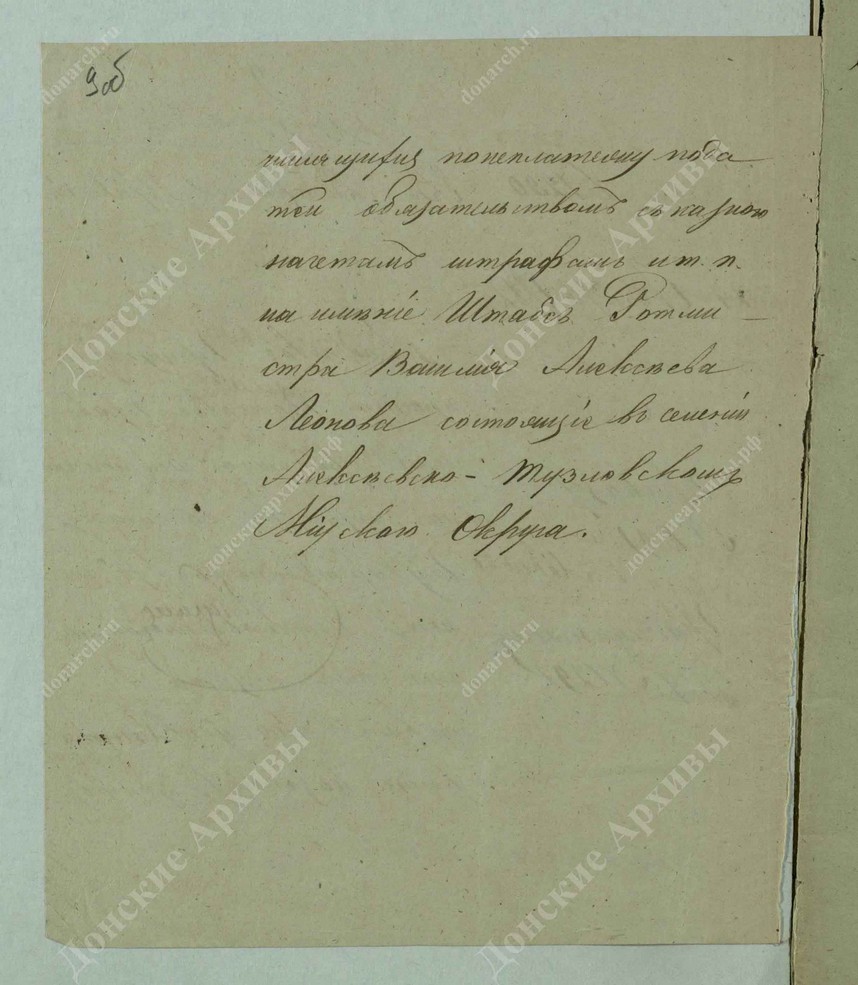 9 об
числящихся по неплатежу пода
тей обязательствомъ съ казною
начетамъ штрафамъ и т. п.
на имѣніе Штабсъ Ротми —
стра Василія Алексѣева
Леонова состоящіе въ селеніи
Алексѣевско - Тузловскомъ
Міускаго Округа.
Донские Архивы
donarch.ru
донскиеархивы.рф